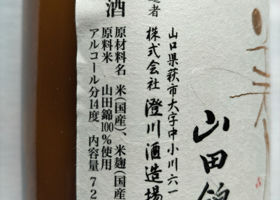 山田錦
山口県萩市大字中小川六一
株式会社 澄川酒造場
者
酒
原材料名 米(国産)、米麹(国産
原料米 山田錦100%使用
アルコール分14度 内容量72